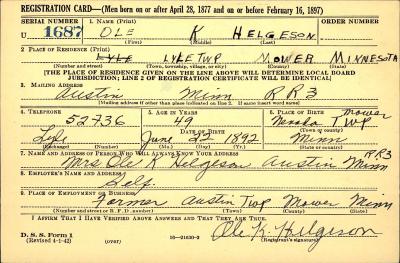 REGISTRATION CARD—(Men born on or after April 28, 1877 and on or before February 16, 1897)
SERIAL NUMBER 1. NAME (Print) ORDER NUMBER
U 1687 OLE K HELGESON
(First) (Middle) (Last)
2. PLACE OF RESIDENCE (Print)
LYLE LYLE TWP MOWER MINNESOTA
(Number and street) (Town, township, village, or city) (County) (State)
[THE PLACE OF RESIDENCE GIVEN ON THE LINE ABOVE WILL DETERMINE LOCAL BOARD
JURISDICTION; LINE 2 OF REGISTRATION CERTIFICATE WILL BE IDENTICAL]
3. MAILING ADDRESS
Austin Minn RR3
[Mailing address if other than place indicated on line 2. If same insert word same]
4. TELEPHONE 5. AGE IN YEARS 6. PLACE OF BIRTH
52736 49 Nevada TWP Mower
DATE OF BIRTH (Town or county)
Lyle June 22 1892 Minn
(Exchange) (Number) (Mo.) (Day) (Yr.) (State or country)
7. NAME AND ADDRESS OF PERSON WHO WILL ALWAYS KNOW YOUR ADDRESS RR3
Mrs Ole K Helgeson Austin Minn
8. EMPLOYER'S NAME AND ADDRESS
Self
9. PLACE OF EMPLOYMENT OR BUSINESS
Farmer Austin Twp Mower Minn
(Number and street or R. F. D. number) (Town) (County) (State)
I AFFIRM THAT I HAVE VERIFIED ABOVE ANSWERS AND THAT THEY ARE TRUE.
D. S. S. Form 1
(Revised 4-1-42) (over) 16—21630-2 Ole K. Helgeson
(Registrant's signature)